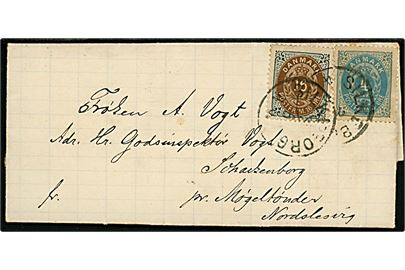 DANMARK
DANMARK
Frøken A. Vogt
Adr. Hr. Godsinspektør Vogt
Schackenborg
fr. pr. Møgeltønder
Nordslesvig